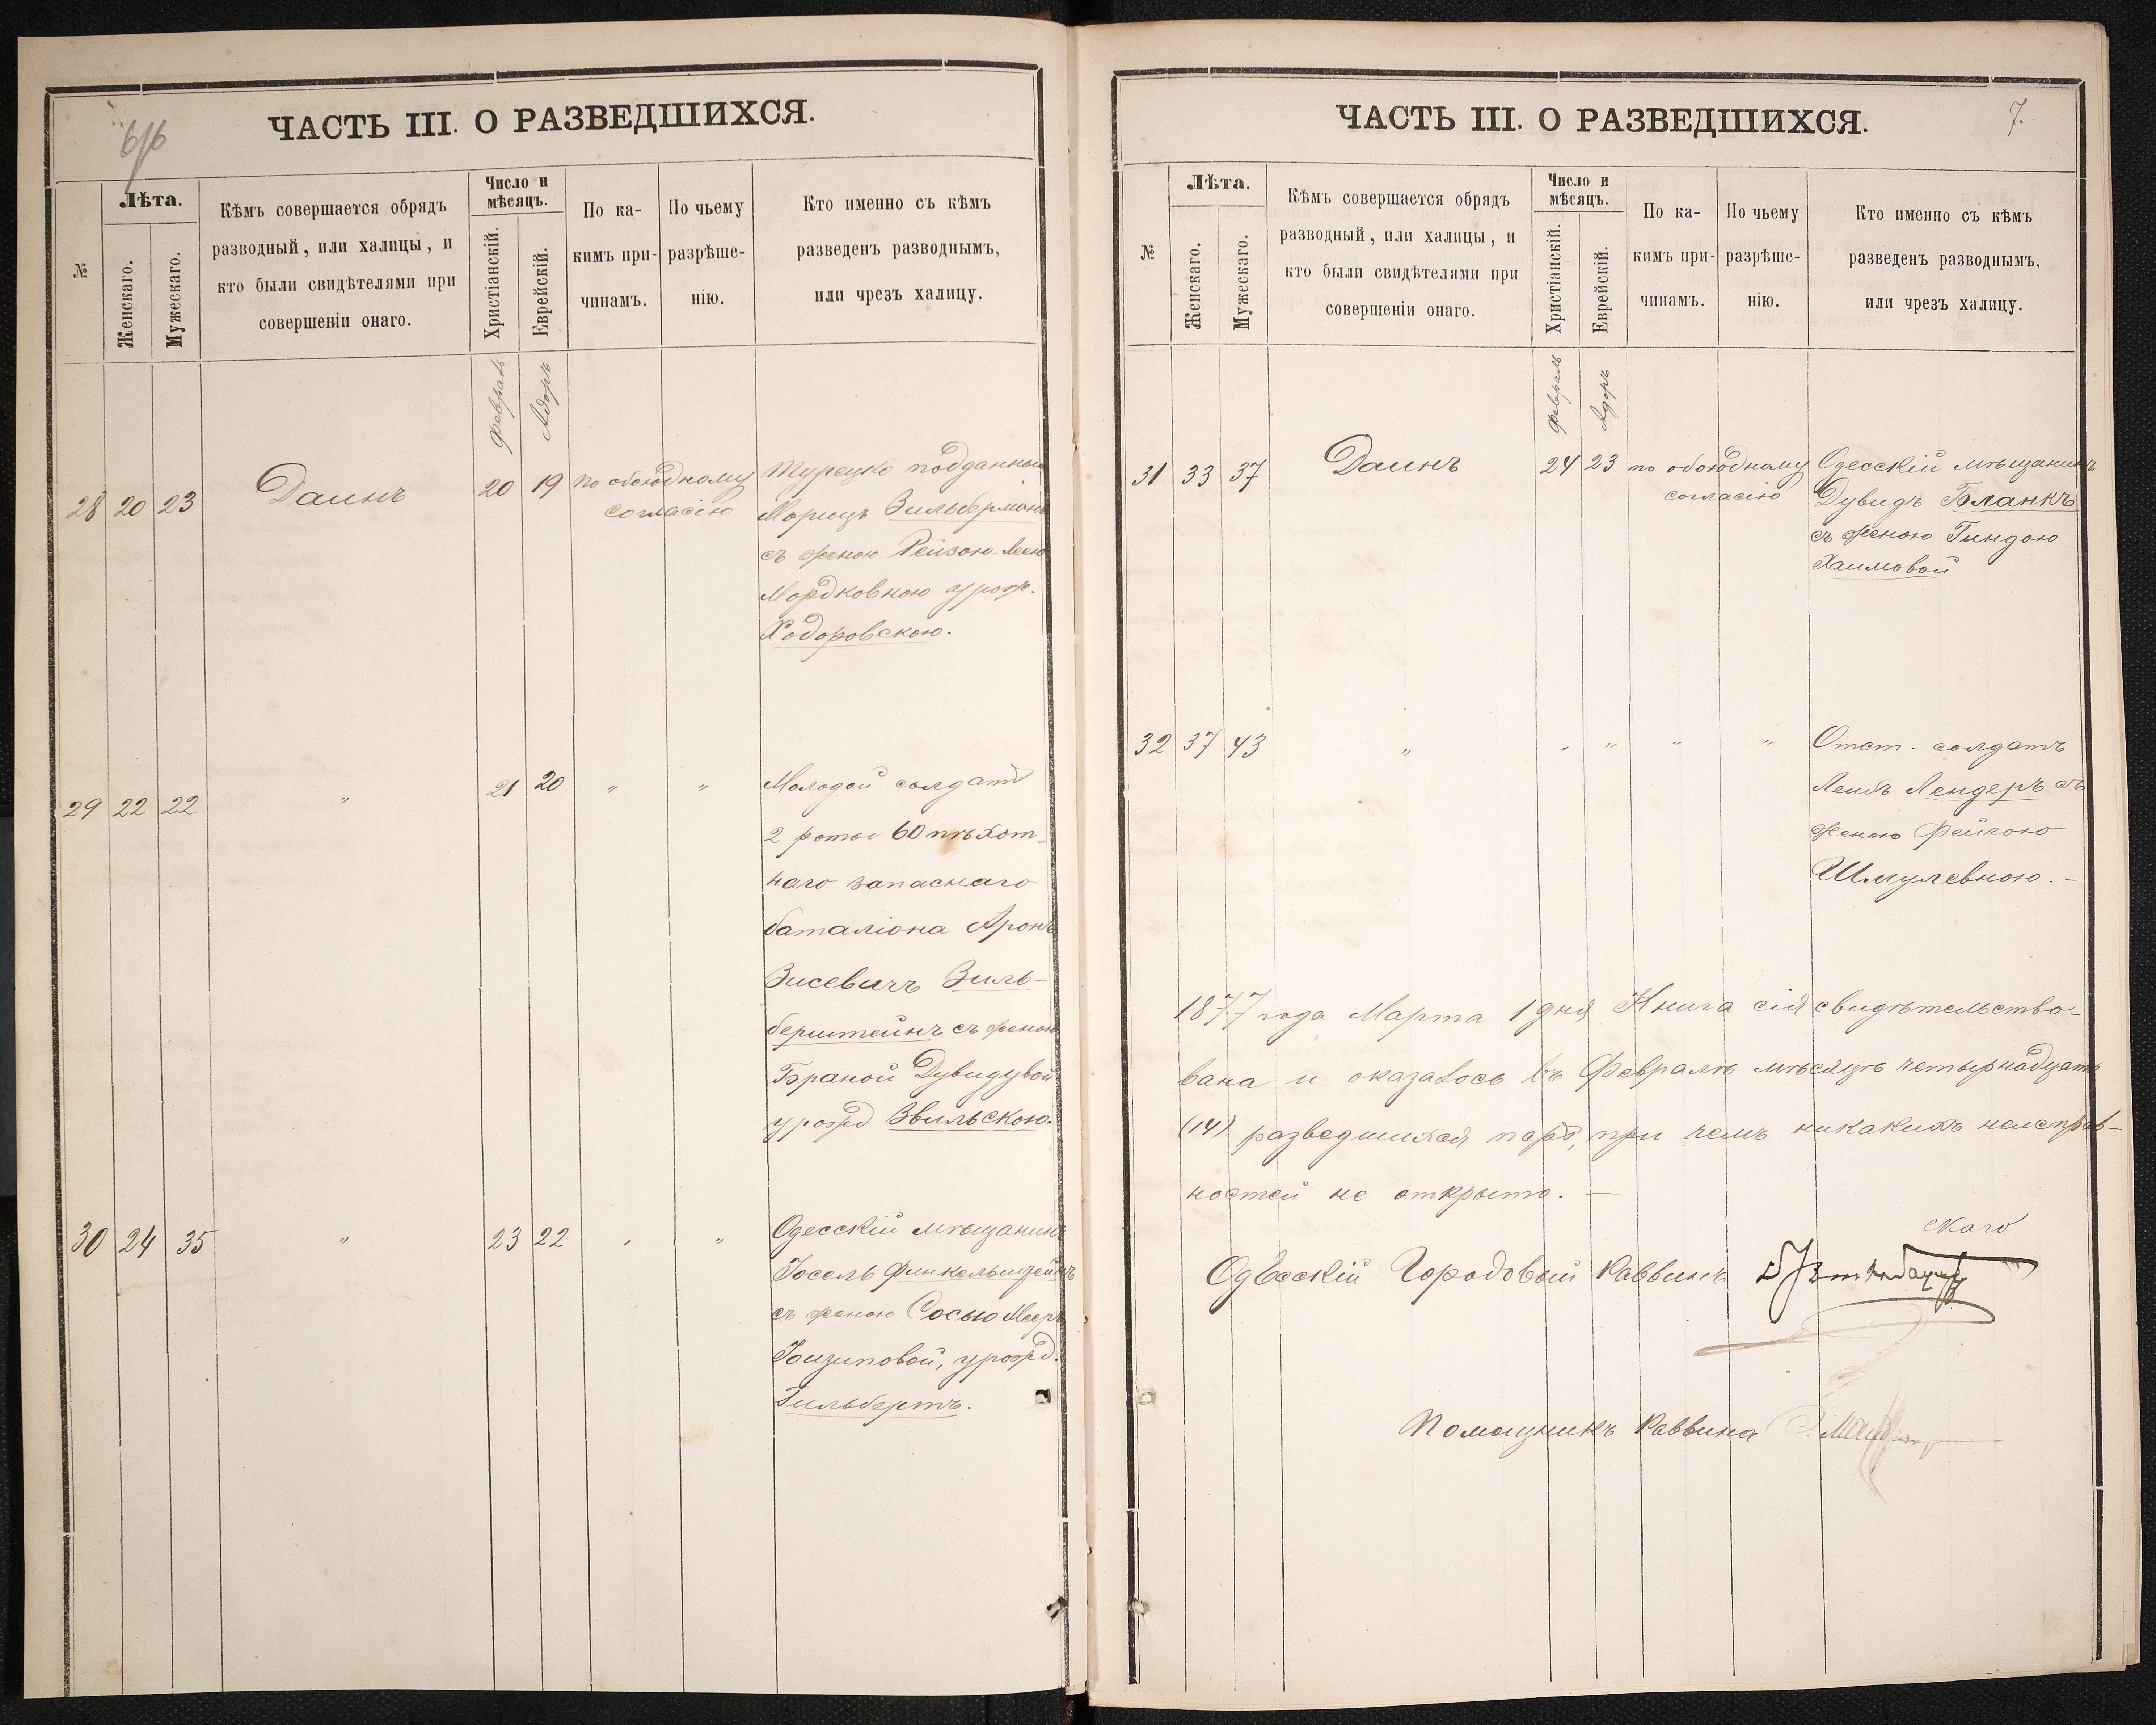 6/6
ЧАСТЬ III. О РАЗВЕДШИХСЯ.
№
Лѣта.
Женскаго.
Мужескаго.
Кѣмъ совершается обрядъ
разводный, или халицы, и
кто были свидѣтелями при
совершеніи онаго.
Число и
мѣсяцъ.
Христіанскій.
Еврейскій.
По ка-
кимъ при-
чинамъ.
По чьему
разрѣше-
нію.
Кто именно съ кѣмъ
разведенъ разводнымъ,
или чрезъ халицу.
Февраль
Адоръ
28 20 23 Даинъ 20 19 по обоюдному Турецко подданный
согласію Морицъ Зильберманъ
съ женою Рейзою-Леею
Мордковною урож.
Ходоровскою.
29 22 22 " 21 20 " " Молодой солдатъ
2 роты 60 пѣхот-
наго запаснаго
баталіона Аронъ
Зисевичъ Зиль-
берштейнъ съ женою
Браной Дувидувой
урожд Звильскою.
30 24 35 " 23 22 " " Одесскій мѣщанинъ
Іосель Финкельштейнъ
съ женою Сосью Мееръ
урожд.
Гильбертъ.
ЧАСТЬ III. О РАЗВЕДШИХСЯ.
7.
№
Лѣта.
Женскаго.
Мужескаго.
Кѣмъ совершается обрядъ
разводный, или халицы, и
кто были свидѣтелями при
совершеніи онаго.
Число и
мѣсяцъ.
Христіанскій.
Еврейскій.
По ка-
кимъ при-
чинамъ.
По чьему
разрѣше-
нію.
Кто именно съ кѣмъ
разведенъ разводнымъ,
или чрезъ халицу.
Февраль
Адоръ
31 33 37 Даинъ 24 23 по обоюдному Одесскій мѣщанинъ
согласію Дувидъ Бланкъ
съ женою Гиндою
Хаимовой
32 37 43 " " " " " Отст. солдатъ
Лейбъ Лендеръ съ
женою Фейгою
Шмулевною.-
1877 года Марта 1 дня Книга сія свидѣтельство-
вана и оказалось въ Февралѣ мѣсяцѣ четырнадцать
(14) разведшихся паръ, при чемъ никакихъ неисправ-
ностей не открыто. -
скаго
Одесскій Городовой Раввинъ
Помощникъ Раввина